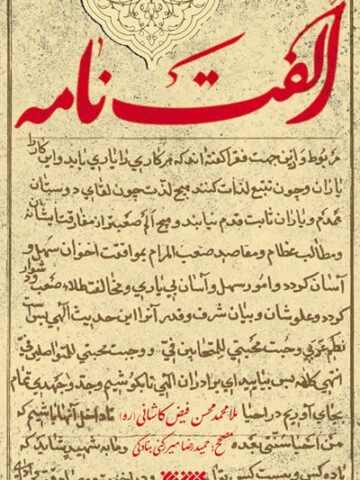 الفت نامه
مربوط و ازین جهت فقرا گفته‌اند که هر کاری را یاری باید و این کار را
یاران و چون تتبع لذات کنند هیچ لذت چون لقای دوستان
همدم و یاران ثابت قدم نیابند و هیچ الم صعبتر از مفارقت ایشان
و مطالب عظام و مقاصد صعب المرام بموافقت اخوان سهل و
آسان گردد و امور سهل و آسان بی یاری و مخالفت صعب
دشوار
گردد و علو شان و بیان شرف و قدر آنرا این حدیث الهی بس
وجبت محبتی للمتحابین فی و وجبت محبتی للمتواصلین فی
انتهی کلامه پس بیایید ای برادران الهی تا بکوشیم و جد و جهدی تمام
بجای آوریم در احیا
ملا محمد محسن فیض کاشانی (ره)
تا داخل آنها باشیم که
من احیا سنتی بعده
مصحح: حمیدرضا میرکنی بنادکی